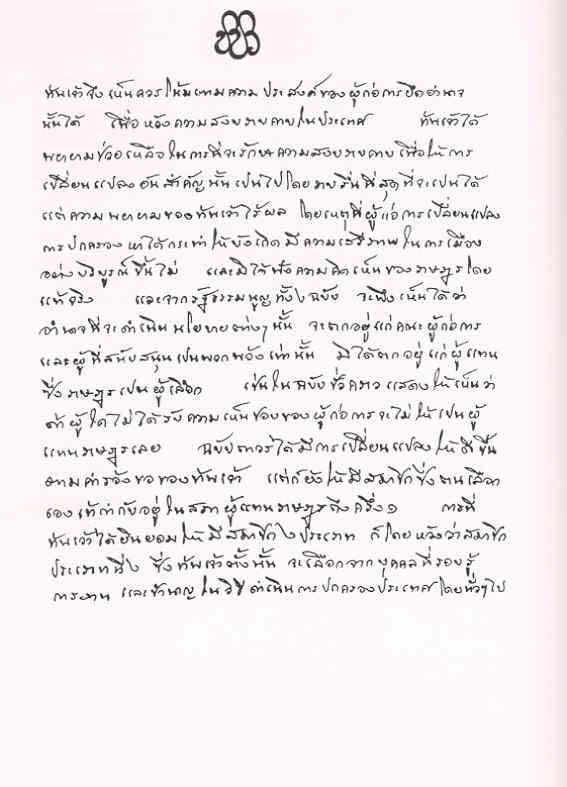 ข้าพเจ้าจึงเห็นควรให้ตามความประสงค์ของผู้ก่อการยึดอำนาจ
นั้นได้ เพื่อหวังความสงบราบคาบในประเทศ ข้าพเจ้าได้
พยายามช่วยเหลือในการที่จะรักษาความสงบราบคาบเพื่อให้การ
เปลี่ยนแปลงอันสำคัญนั้นเป็นไปโดยราบรื่นที่สุดที่จะเป็นได้
แต่ความพยายามของข้าพเจ้าไร้ผล โดยเหตุที่ผู้ก่อการเปลี่ยนแปลง
การปกครองหาได้กระทำให้บังเกิดมีความเสรีภาพในการเมือง
อย่างบริบูรณ์ขึ้นไม่ และมิได้ฟังความคิดเห็นของราษฎรโดย
แท้จริง และจากรัฐธรรมนูญทั้ง ๒ ฉบับ จะพึงเห็นได้ว่า
อำนาจที่จะดำเนินนโยบายต่างๆ นั้น จะตกอยู่แก่คณะผู้ก่อการ
และผู้ที่สนับสนุนเป็นพวกพ้องเท่านั้น มิได้ตกอยู่แก่ผู้แทน
ซึ่งราษฎรเป็นผู้เลือก เช่นในฉบับชั่วคราว แสดงให้เห็นว่า
ถ้าผู้ใดไม่ได้รับความเห็นชอบของผู้ก่อการ จะไม่ให้เป็นผู้
แทนราษฎรเลย ฉบับถาวรได้มีการเปลี่ยนแปลงให้ดีขึ้น
ตามคำร้องขอของข้าพเจ้า แต่ก็ยังให้มีสมาชิกซึ่งตนเลือก
เองเข้ากำกับอยู่ในสภาผู้แทนราษฎรถึงครึ่ง ๑ การที่
ข้าพเจ้าได้ยินยอมให้มีสมาชิก ๒ ประเภท ก็โดยหวังว่าสมาชิก
ประเภทที่ ๒ ซึ่งข้าพเจ้าตั้งนั้น จะเลือกจากบุคคลที่รอบรู้
การงาน และชำนาญในวิธีดำเนินการปกครองประเทศโดยทั่วๆ ไป